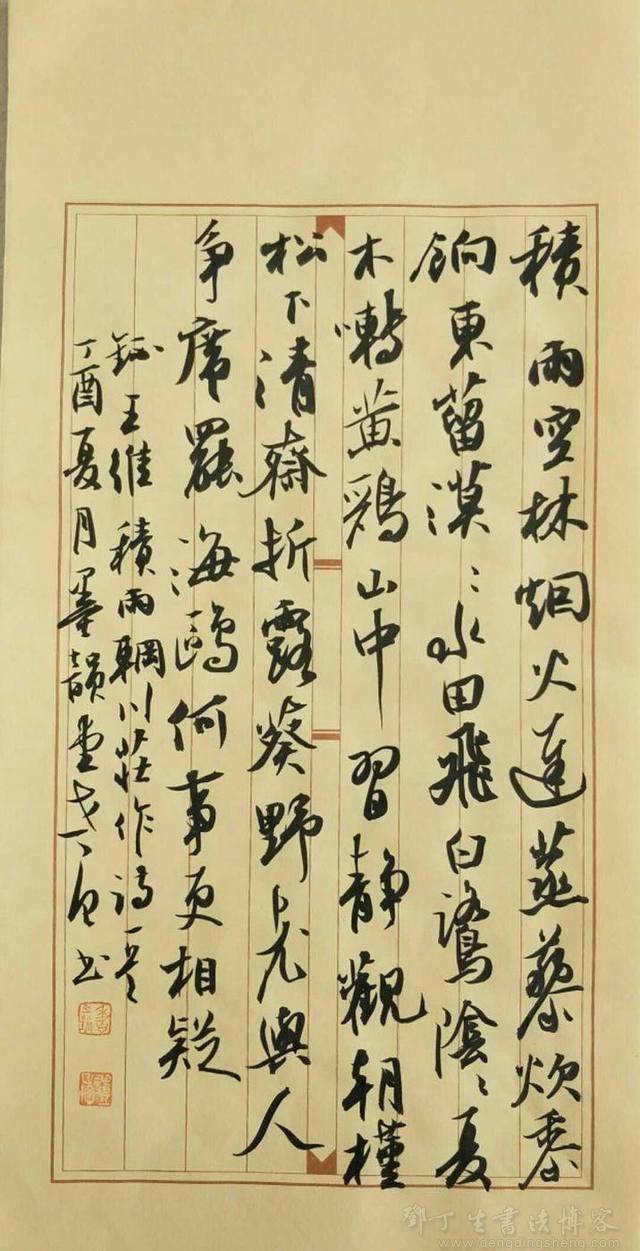 積雨空林烟火遲蒸藜炊黍
餉東菑漠〻水田飛白鷺陰〻夏
木囀黄鸝山中習靜觀朝槿
松下清齋折露葵野老與人
争席罷海鷗何事更相疑
錄王維積雨輞川莊作詩一首
丁酉夏月墨韻堂书
鄧丁生書法博客
www.dengdingsheng.com